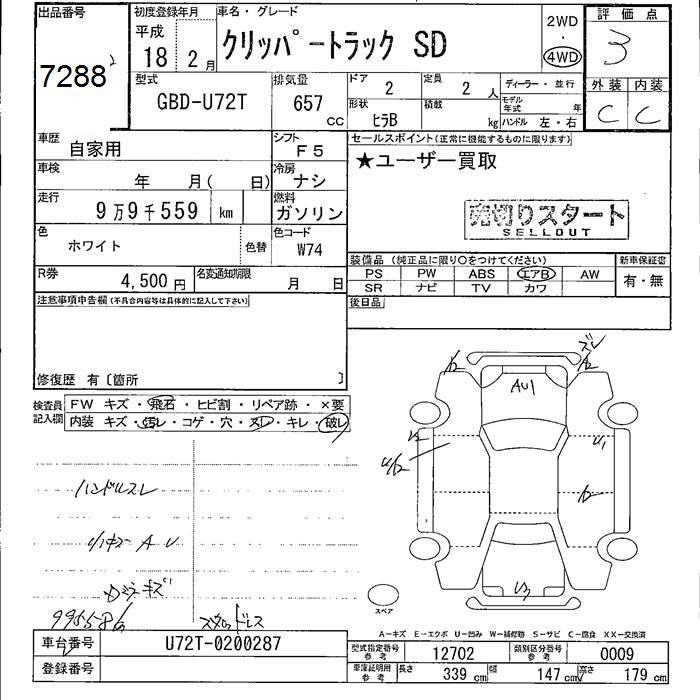 出品番号 初度登録年月 車名・グレード 2WD ・ 4WD 評価点
7288 平成 18 2月 クリッパートラック SD 3
型式 GBD-U72T 排気量 657 cc ドア 2 定員 2人 ディーラー・並行 外装 内装
形状 ヒラB 積載 kg モデル年式 年 ハンドル 左・右 C C
車歴 自家用 シフト F5 セールスポイント(正常に機能するものに限ります)
車検 年 月( 日) 冷房 ナシ ★ユーザー買取
走行 9万9千559 km 燃料 ガソリン 売切りスタート
SELLOUT
色 ホワイト 色替 色コード W74
装備品 (純正品に限り○をつけてください) 新車保証書
R券 4,500円 名変通知期限 月 日 PS PW ABS エアB AW 有・無
SR ナビ TV カワ
注意事項申告欄(不具合内容等は具体的に記入して下さい) 後日品
修復歴 有〔箇所 〕
検査員記入欄 FW キズ・飛石・ヒビ割・リペア跡・×要
内装 キズ・汚レ・コゲ・穴・スレ・キレ・破レ
ハンドルスレ
ズレ
A2
AU1
U1
U3
スペア
A−キズ E−エクボ U−凹み W−補修跡 S−サビ C−腐食 XX−交換済
車台番号 U72T-0200287 型式指定番号 参考 12702 類別区分番号 参考 0009
登録番号 車庫証明用 参考 長さ 339 cm 幅 147 cm 高さ 179 cm